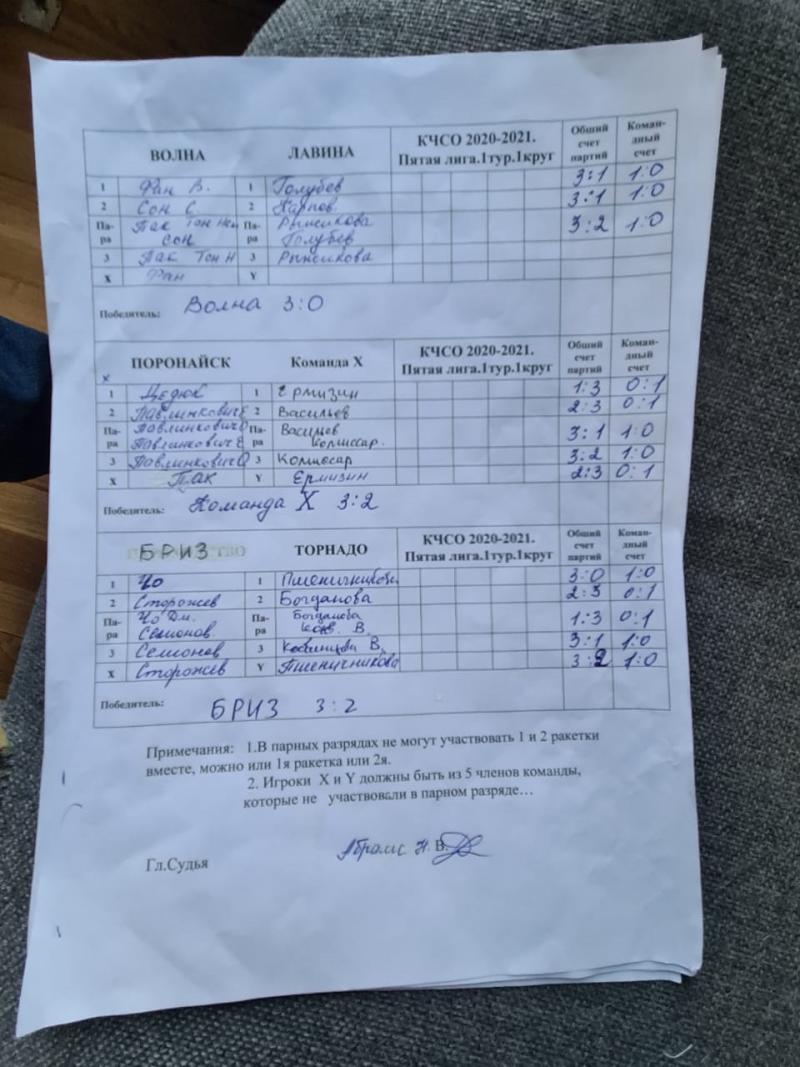 ВОЛНА ЛАВИНА КЧСО 2020-2021. Пятая лига.1тур.1круг Общий счет партий Коман-дный счет
1 Фан В. 1 Голубев 3:1 1:0
2 Сон С. 2 Карпов 3:1 1:0
Па-ра Пак Тон Сон Па-ра Рыжикова Голубев 3:2 1:0
3 Пак Тон Н 3 Рыжикова
X Фан Y
Победитель: Волна 3:0
ПОРОНАЙСК Команда X КЧСО 2020-2021. Пятая лига.1тур.1круг Общий счет партий Коман-дный счет
x
1 Дедюк 1 Ермизин 1:3 0:1
2 Павлинкович Е 2 Васильев 2:3 0:1
Па-ра Павлинкович Павлинкович Е Па-ра Васильев Комиссар. 3:1 1:0
3 Павлинкович 3 Комиссар 3:2 1:0
X Пак Y Ермизин 2:3 0:1
Победитель: Команда X 3:2
БРИЗ ТОРНАДО КЧСО 2020-2021. Пятая лига.1тур.1круг Общий счет партий Коман-дный счет
1 Чо 1 Пшеничникова 3:0 1:0
2 Сторожев 2 Богданова 2:3 0:1
Па-ра Чо Дм. Семионов Па-ра Богданова В. 1:3 0:1
3 Семионов 3 В. 3:1 1:0
X Сторожев Y Пшеничникова 3:2 1:0
Победитель: БРИЗ 3:2
Примечания: 1.В парных разрядах не могут участвовать 1 и 2 ракетки
вместе, можно или 1я ракетка или 2я.
2. Игроки X и Y должны быть из 5 членов команды,
которые не участвовали в парном разряде…
Гл.Судья Абрамс Н.В.